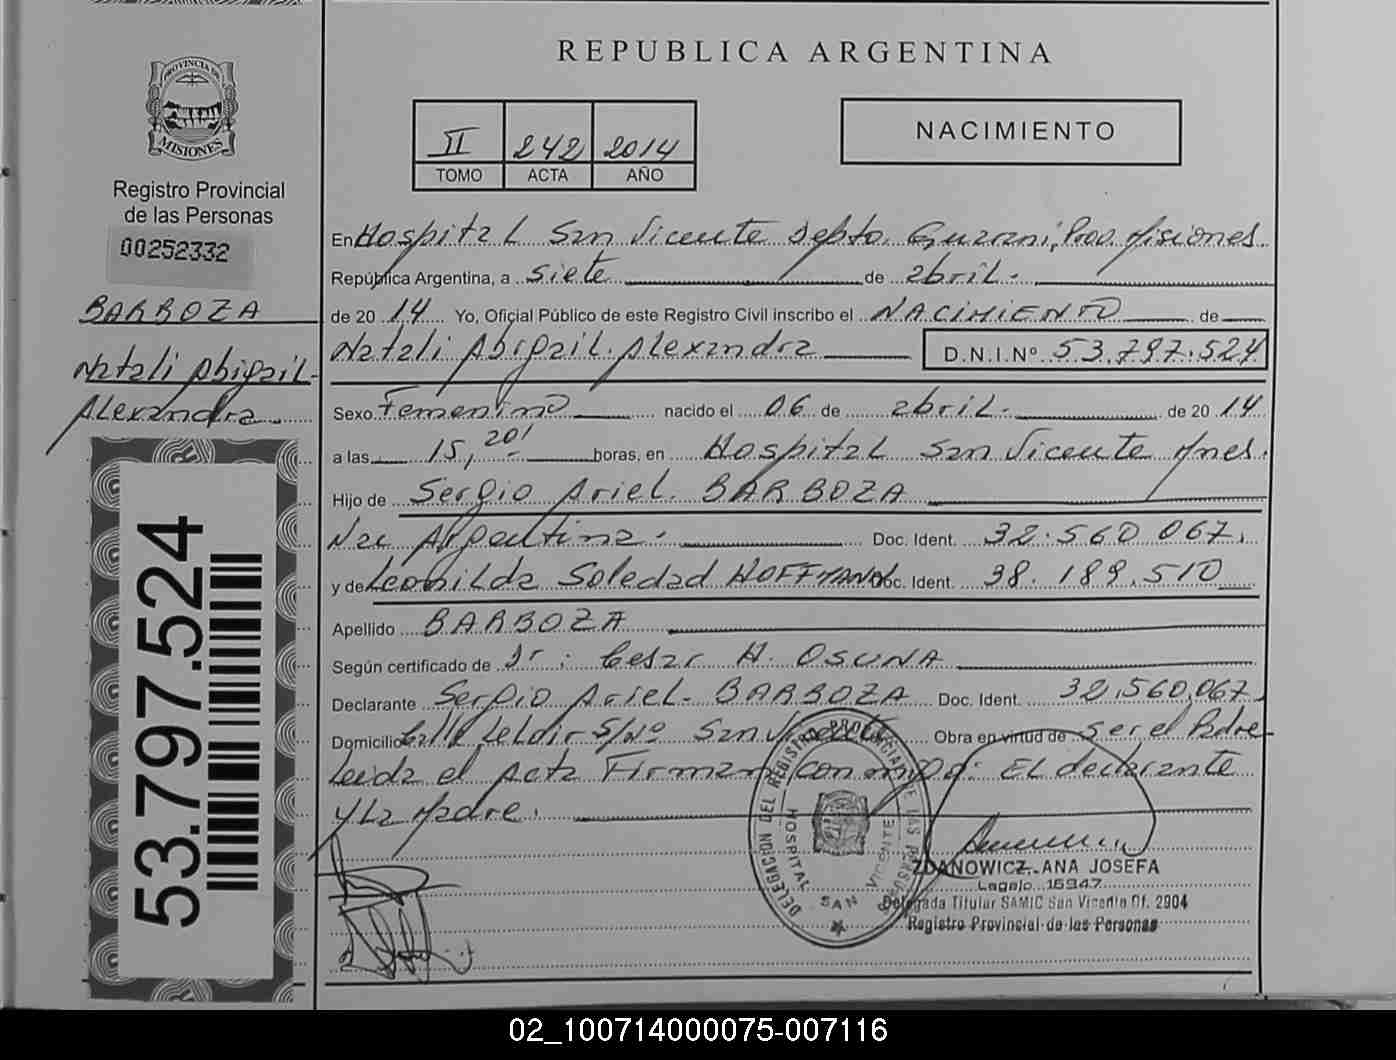 REPUBLICA ARGENTINA
PROVINCIA DE
MISIONES
Registro Provincial
de las Personas
00252332
BARBOZA
Natali Abigail-
Alexandra
53.797.524
II 242 2014
TOMO ACTA AÑO
NACIMIENTO
En Hospital San Vicente Depto. Guarani, Prov. Misiones.
República Argentina, a siete de abril.
de 2014 Yo, Oficial Público de este Registro Civil inscribo el NACIMIENTO de
Natali Abigail. Alexandra D.N.I.Nº 53.797.524
Sexo Femenino nacido el 06 de abril. de 2014
a las 15,20' horas, en Hospital San Vicente Mnes.
Hijo de Sergio Ariel. BARBOZA
Nac Argentina. Doc. Ident. 32.560 067.
y de Leonilda Soledad HOFFMANN Doc. Ident. 38.189.510
Apellido BARBOZA
Según certificado de Dr: Cesar H. OSUNA
Declarante Sergio Ariel. BARBOZA Doc. Ident. 32,560,067.
Domicilio Calle S/Nº San Vicente Obra en virtud de ser el Padre
Leida el Acta Firman conmigo: El declarante
y La Madre.
DELEGACION DEL REGISTRO PROVINCIAL DE LAS PERSONAS
HOSPITAL SAN VICENTE
ZDANOWICZ ANA JOSEFA
Legajo 15947
Delegada Titular SAMIC San Vicente Of. 2904
Registro Provincial de las Personas
02_100714000075-007116